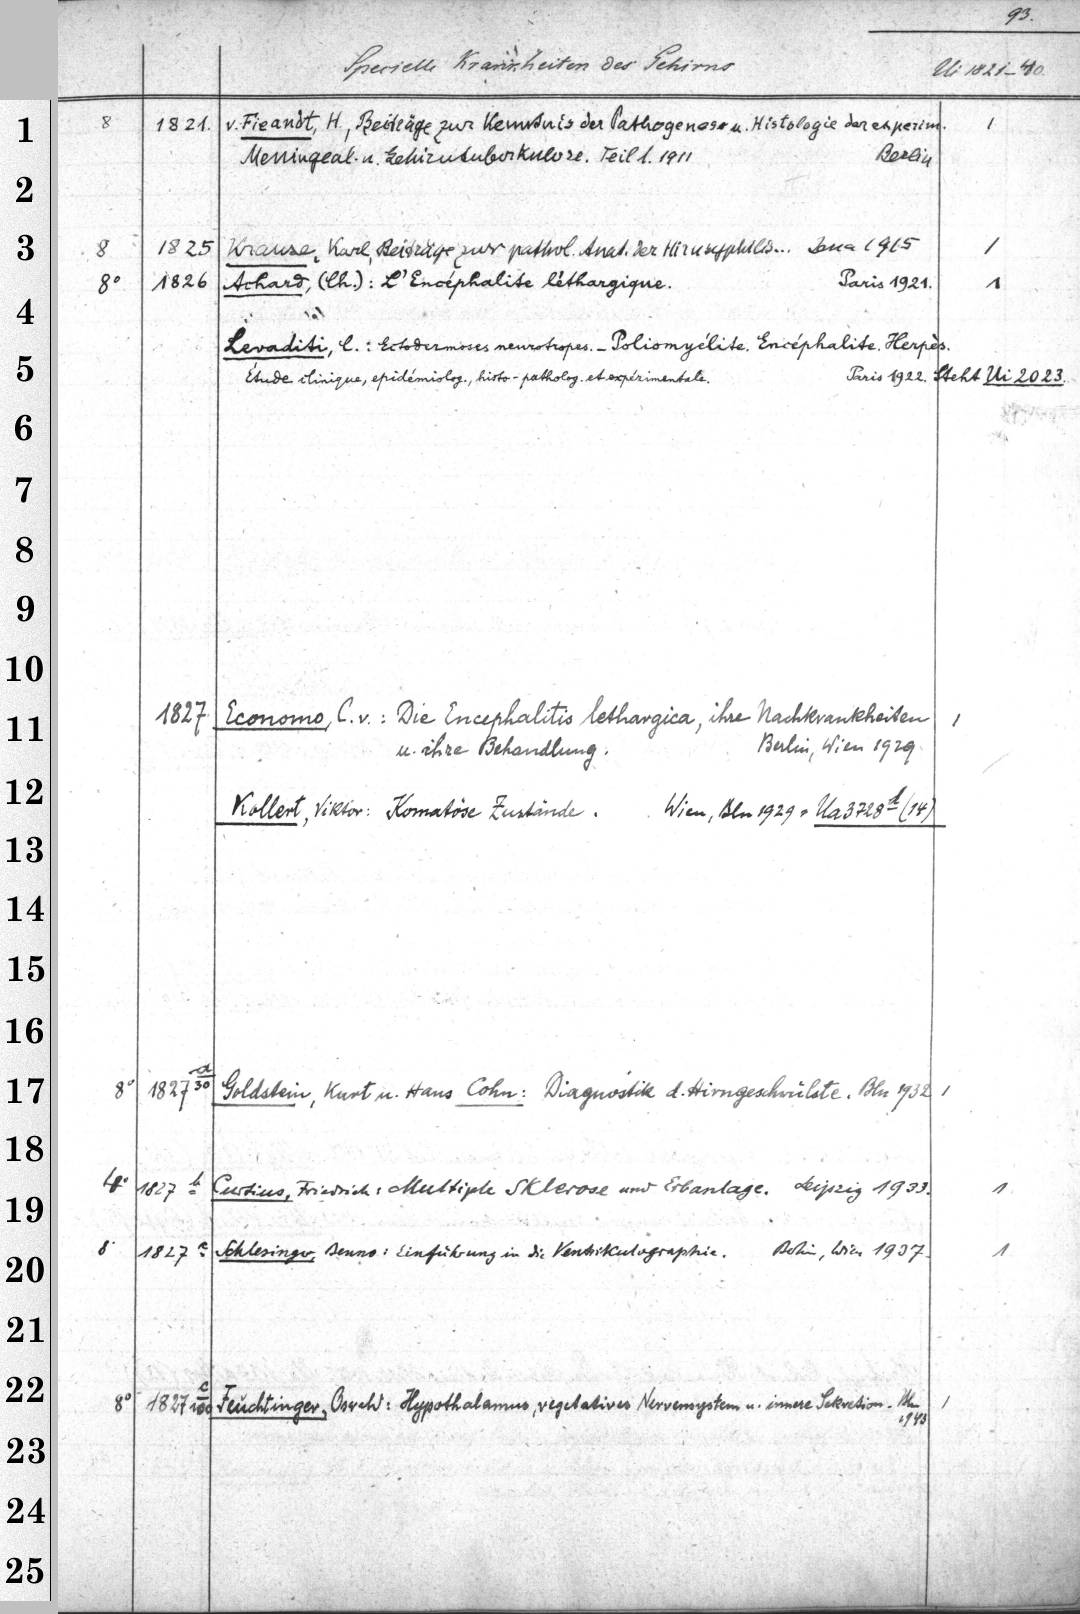 93.
Specielle Krankheiten des Gehirns Ui 1821-40.
1 8 1821. v. Fieandt, H., Beiträge zur Kenntnis der Pathogenese u. Histologie der experim. 1
Meningeal- u. Gehirntuberkulose. Teil 1. 1911 Berlin
2
3 8 1825 Krause, Karl, Beiträge zur pathol. Anat. der Hirnsyphilis... Jena 1915 1
8° 1826 Achard, (Ch.): L'Encéphalite léthargique. Paris 1921. 1
4
Levaditi, C.: Ectodermoses neurotropes. - Poliomyélite. Encéphalite. Herpès.
5 Étude clinique, epidémiolog., histo-patholog. et expérimentale. Paris 1922. Steht Ui 2023.
6
7
8
9
10
11 1827 Economo, C. v.: Die Encephalitis lethargica, ihre Nachkrankheiten 1
u. ihre Behandlung. Berlin, Wien 1929
12 Kollert, Viktor: Komatöse Zustände. Wien, Bln 1929 = Ua 3728 d (14)
13
14
15
16
17 8° 1827 a/30 Goldstein, Kurt u. Hans Cohn: Diagnostik d. Hirngeschwülste. Bln 1932 1
18
19 4° 1827 b Curtius, Friedrich: Multiple Sklerose und Erbanlage. Leipzig 1933. 1
20 8° 1827 c Schlesinger, Benno: Einführung in die Ventrikulographie. Berlin, Wien 1937. 1
21
22 8° 1827 c/100 Feuchtinger, Oswald: Hypothalamus, vegetatives Nervensystem u. innere Sekretion. 1943 1
23
24
25